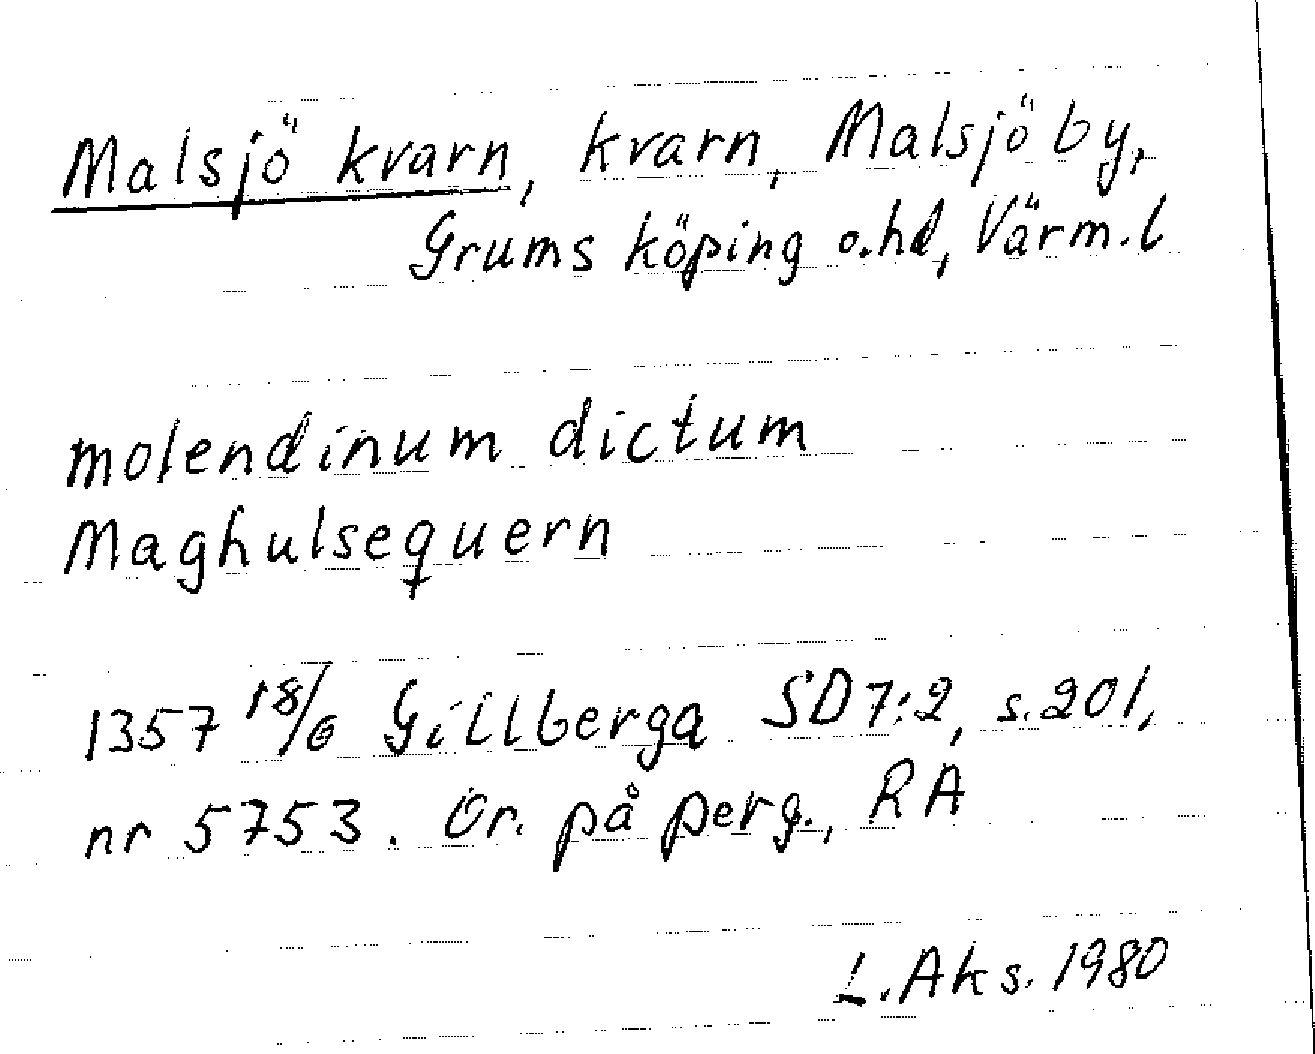 Malsjö kvarn, kvarn, Malsjö by,
Grums köping o. hd, Värml.
molendinum dictum
Maghulsequern
1357 18/6 Gillberga SD 7:2, s. 201,
nr 5753. Or. på perg., RA
L. Aks. 1980